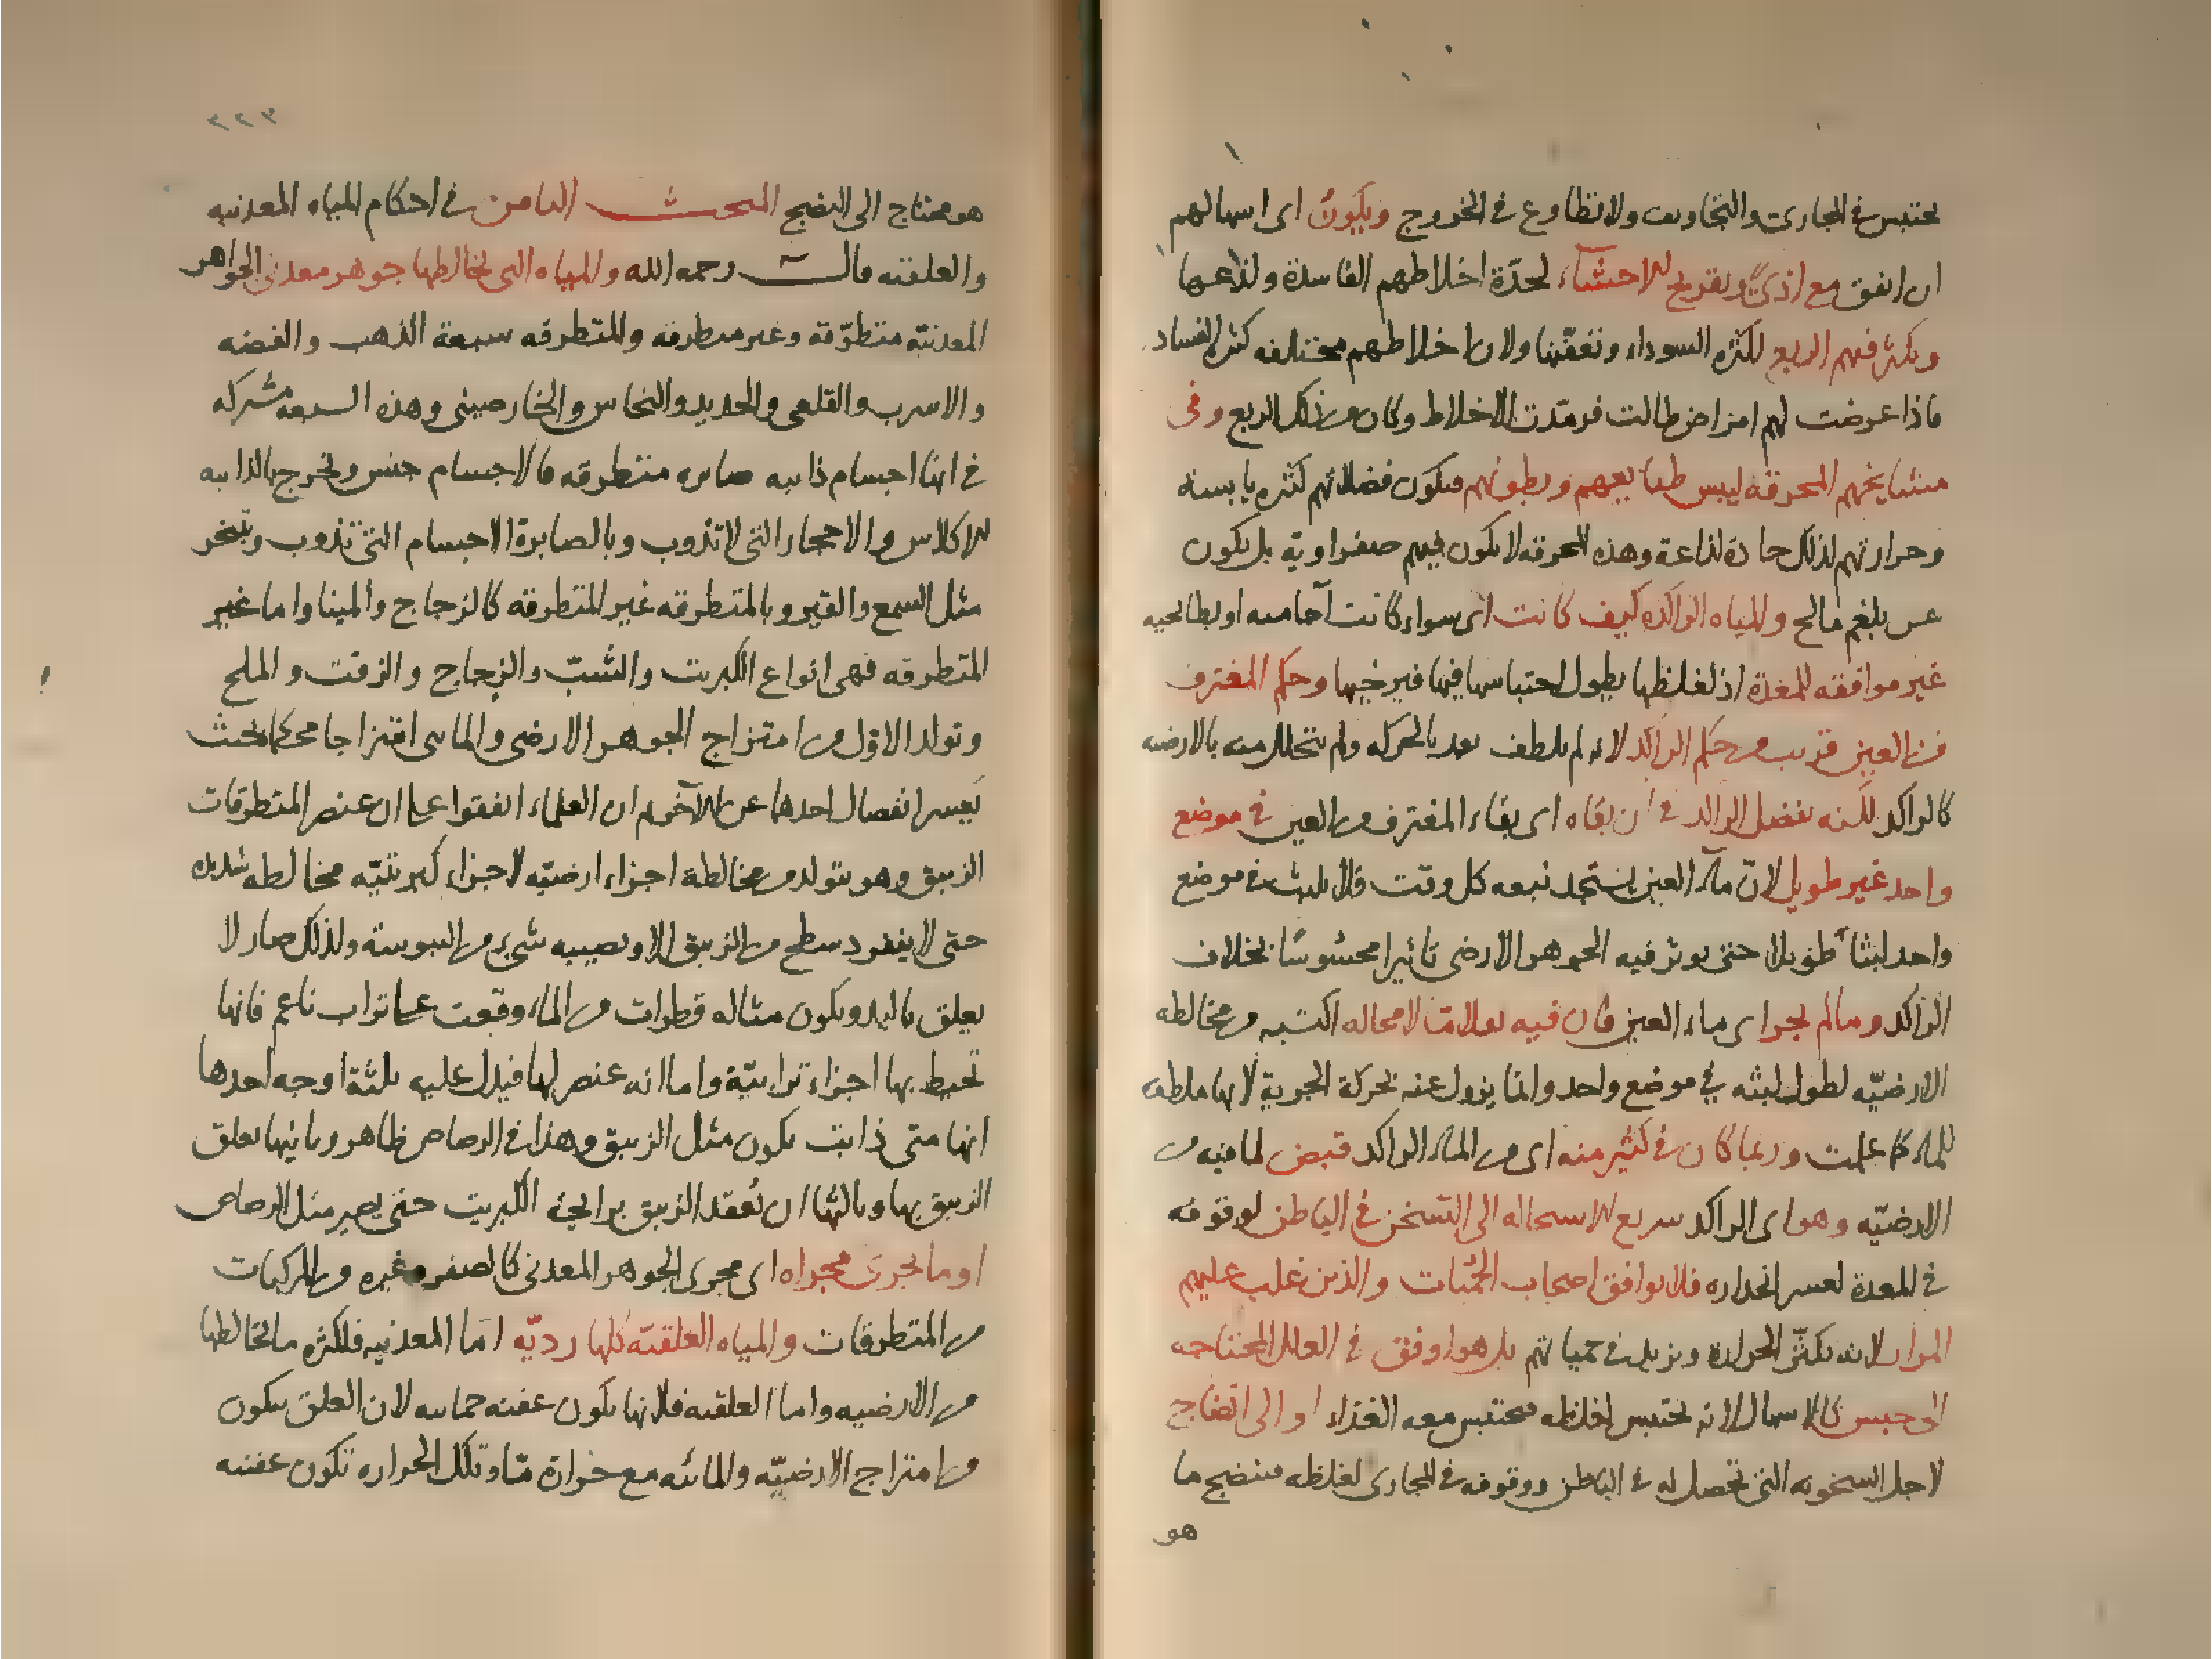 محتبس في المجاري والتجاويف ولا تطاوع في الخروج ويكون اى اسهالهم
ان اتفق مع اذىً وتقريح للاحشاء لحدّة اخلاطهم الفاسدة ولذاعها
ويكثر فيهم الربع لكثرة السوداء وتعفّنها ولان اخلاطهم مختلفه كثيرة الفساد
فاذا عرضت لهم امراض طالت فرمّدت الاخلاط وكان من ذلك الربع وفى
مشايخهم المحرقه ليبس طبايعهم وبطونهم فيكون فضلاتهم كثيره يابسة
وحرارتهم لذلك حادة لذاعة وهذه المحرقه لا يكون فيهم صفراوية بل يكون
عن بلغم مالح والمياه الراكده كيف كانت اى سواء كانت آجاميه او بطايحيه
غير موافقه للمعدة اذ لغلظها يطول احتباسها فيها فيرخيها وحكم المغترف
من العين قريب من حكم الراكد لانه لم يلطف بعد بالحركه ولم يتحلل منه بالارضيه
كالراكد لكنه يفضل الراكد في ان بقاه اى بقاء المغترف من العين في موضع
واحد غير طويل لانّ مآء العين يستجد نبعه كل وقت فلا يلبث في موضع
واحد لبثاً طويلا حتى يوثر فيه الجوهر الارضي تاثيرا محسُوسًا بخلاف
الراكد وما لم يجر اى ماء العين فان فيه ثقلا ما لا محاله اكتسبه من مخالطه
الارضيّه لطول لبثه في موضع واحد وانما يزول عنه بحركة الجرية لانها ملطفه
للماء كما علمت وربما كان في كثير منه اى من الماء الراكد قبض لما فيه من
الارضيّه وهو اى الراكد سريع الاستحاله الى التسخن في الباطن لوقوفه
في المعدة لعسر انحداره فلا يوافق اصحاب الحمّيات والذين غلب عليهم
المرار لانه يكثّر الحرارة ويزيد في حمياتهم بل هو اوفق في العلل المحتاجه
الى حبس كالاسهال لانه يحتبس لغلظه فيحتبس معه الغذاء او الى انضاج
لاجل السخونه التى تحصل له في الباطن ووقوفه في المجارى لغلظه فينضج ما
هو
٢٢٢
هو محتاج الى النضج المبحث الثامن في احكام المياه المعدنيه
والعلقيه قال رحمه الله والمياه التى يخالطها جوهر معدنى الجواهر
المعدنيّة متطرّقة وغير متطرقه والمتطرقه سبعة الذهب والفضه
والاسرب والقلعى والحديد والنحاس والخارصينى وهذه السبعه مشتركه
في انها اجسام ذايبه صابره متطرقه فالاجسام جنس ويخرج بالذايبه
الاكلاس والاحجار التى لا تذوب وبالصابرة الاجسام التى تذوب وتتبخر
مثل الشمع والقير وبالمتطرقه غير المتطرقه كالزجاج والمينا واما غير
المتطرقه فهى انواع الكبريت والشبّ والزجاج والزفت والملح
وتولد الاوّل من امتزاج الجوهر الارضى والمائى امتزاجا محكما بحيث
يَعسر انفصال احدهما عن الآخر ثم ان العلماء اتفقوا على ان عنصر المتطرقات
الزيبق وهو يتولد من مخالطة اجزاء ارضيّه لاجزاء كبريتيّه مخالطه شديده
حتى لا ينفرد سطح من الزيبق الا ويصيبه شىء من اليبوسة ولذلك صار لا
يعلق باليد ويكون مثاله قطرات من الماء وقعت على تراب ناعم فانها
تحيط بها اجزاء ترابيّة واما انه عنصر لها فيدل عليه ثلثة اوجه احدها
انها متى ذابت يكون مثل الزيبق وهذا في الرصاص ظاهر وثانيها تعلق
الزيبق بها وثالثها ان يُعقد الزيبق برايحة الكبريت حتى يصير مثل الرصاص
او ما يجرى مجراه اى مجرى الجوهر المعدنى كالصفر وغيره من المركبات
من المتطرقات والمياه العلقيّه كلها رديّه امّا المعدنيه فلكثره ما يخالطها
من الارضيه واما العلقيه فلانها يكون عفنه حمائيه لان العلق يتكون
من امتزاج الارضيّه والمائيه مع حرارة مّا وتلك الحراره تكون عفنيه